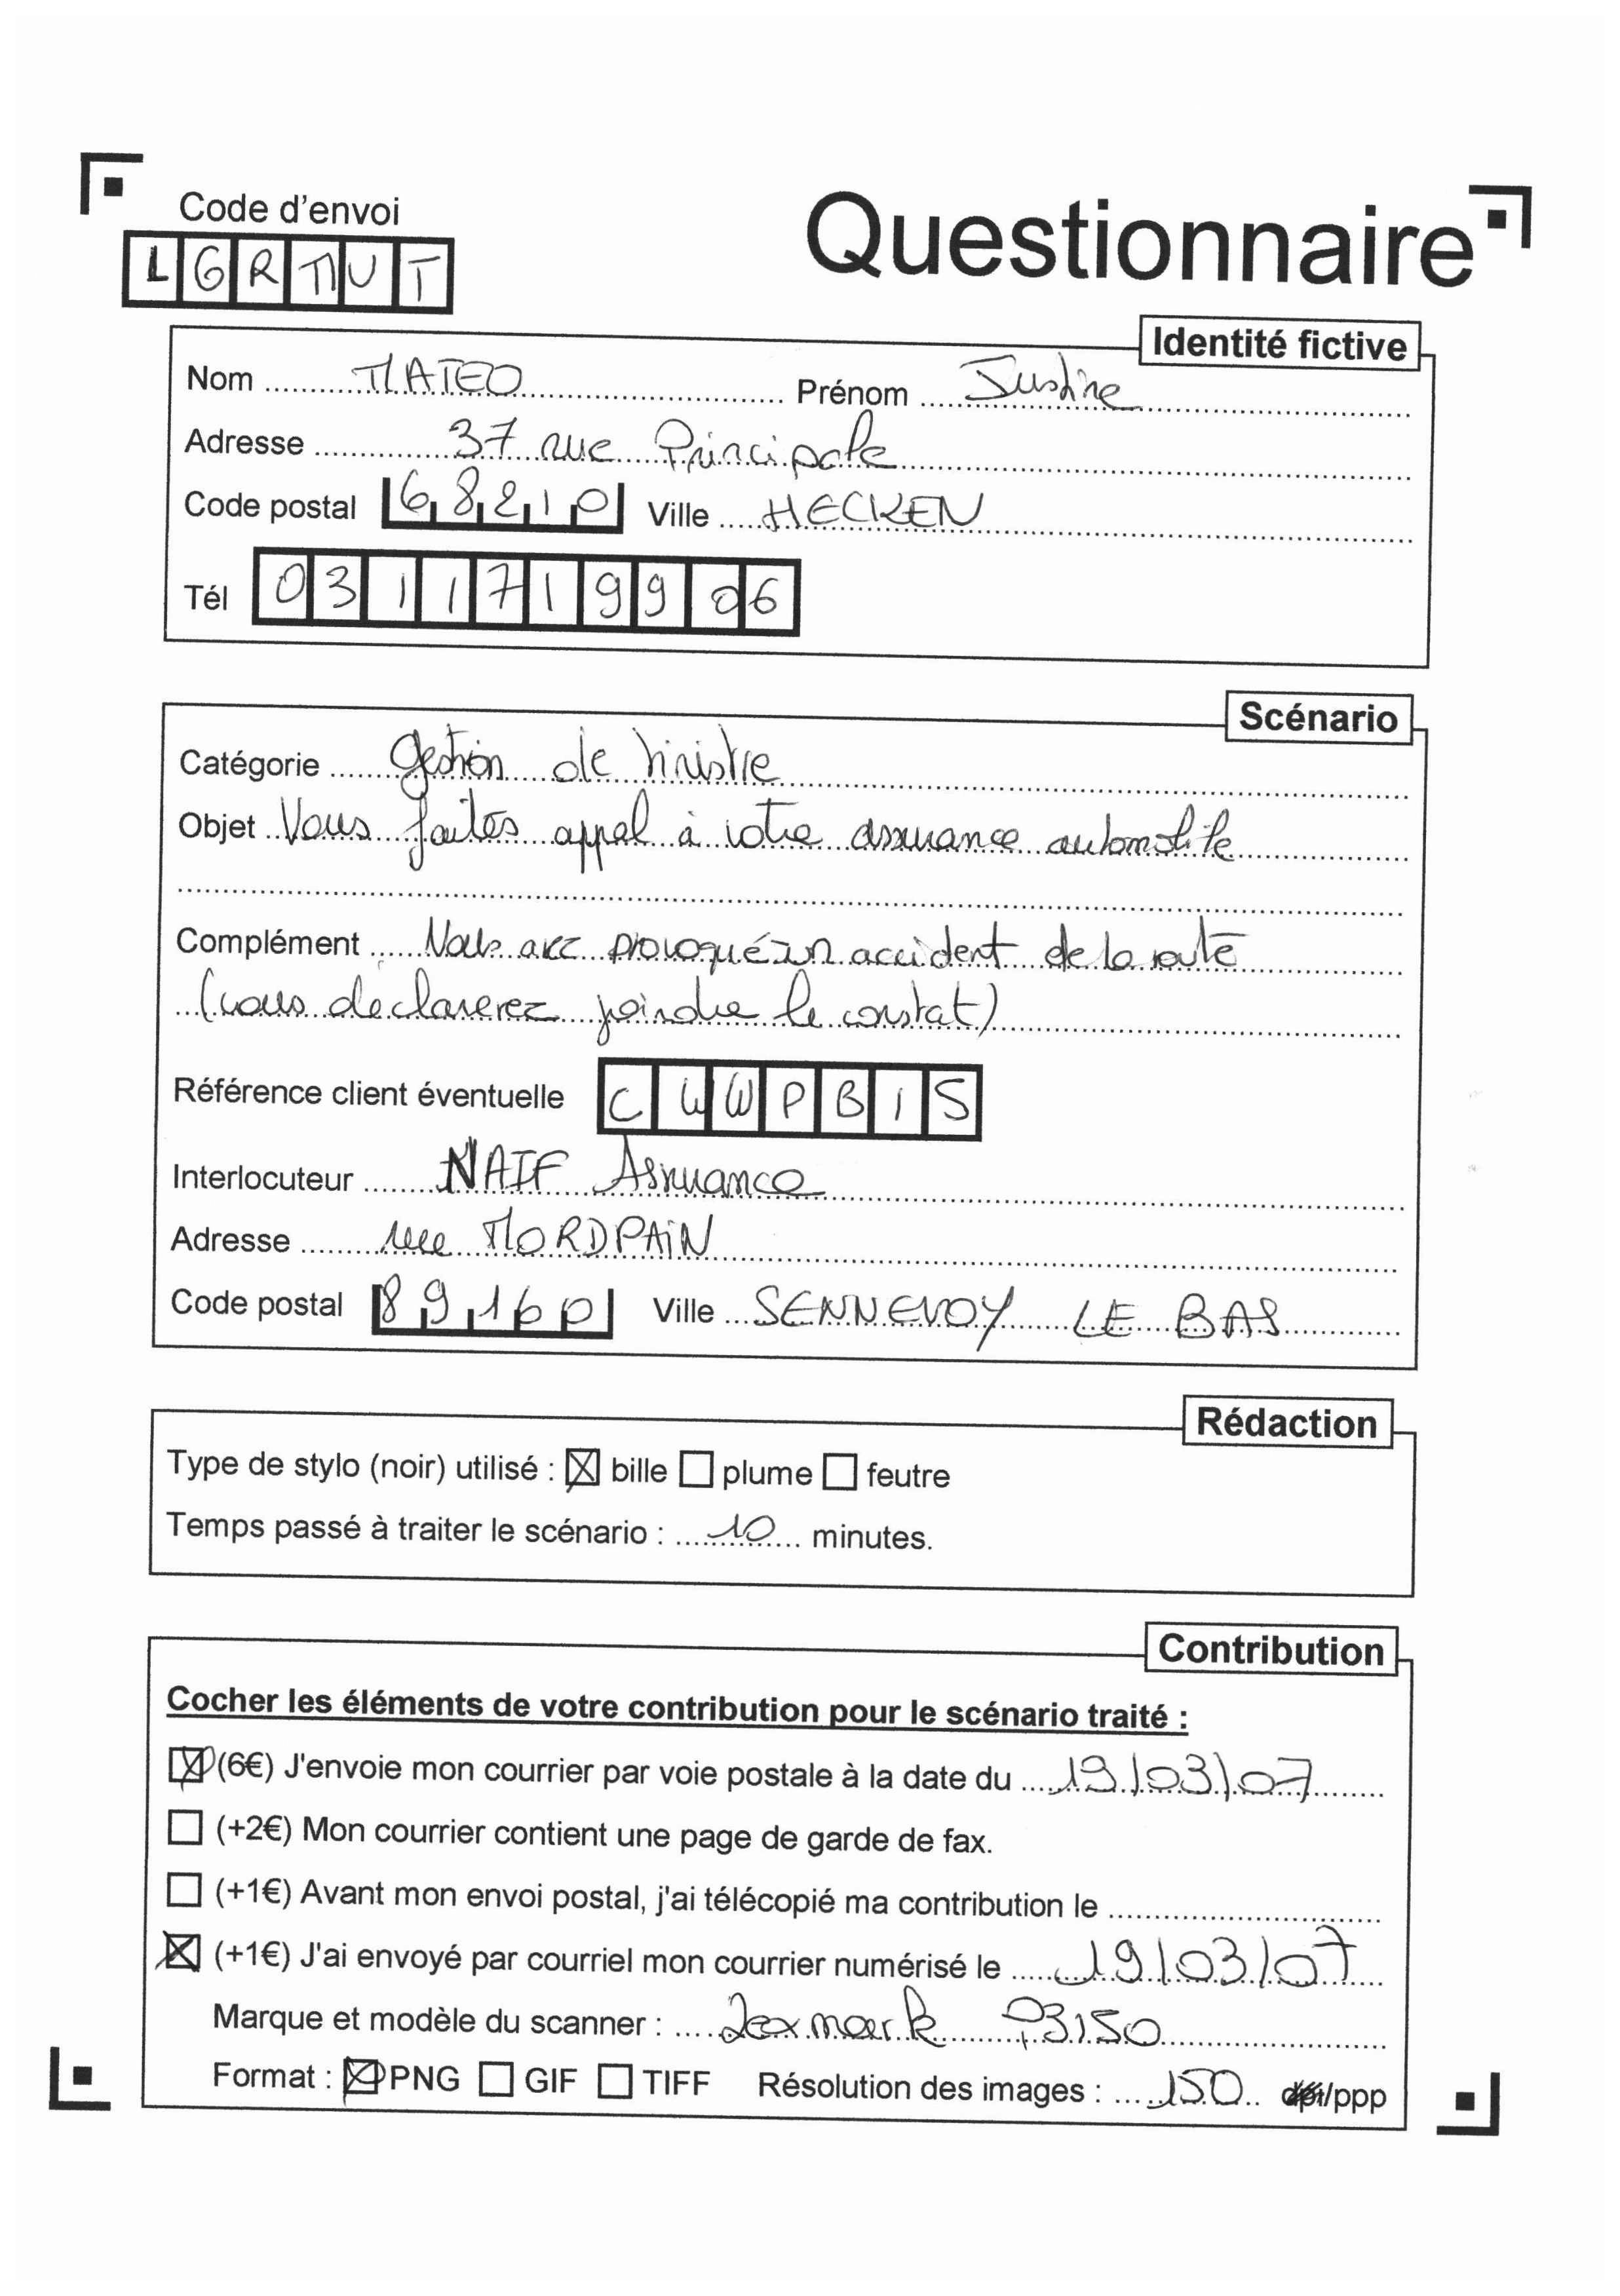 Code d'envoi
LGRMUT
Questionnaire
Identité fictive
Nom MATEO Prénom Justine
Adresse 37 rue Principale
Code postal 68210 Ville HECKEN
Tél 0311719906
Scénario
Catégorie gestion de sinistre
Objet Vous faites appel à votre assurance automobile
Complément Vous avez provoqué un accident de la route
(vous déclarerez joindre le constat)
Référence client éventuelle CWWPBIS
Interlocuteur NAIF Assurance
Adresse rue MORDPAIN
Code postal 89160 Ville SENNEVOY LE BAS
Rédaction
Type de stylo (noir) utilisé : bille plume feutre
Temps passé à traiter le scénario : 10 minutes.
Contribution
Cocher les éléments de votre contribution pour le scénario traité :
(6€) J'envoie mon courrier par voie postale à la date du 19/03/07
(+2€) Mon courrier contient une page de garde de fax.
(+1€) Avant mon envoi postal, j'ai télécopié ma contribution le
(+1€) J'ai envoyé par courriel mon courrier numérisé le 19/03/07
Marque et modèle du scanner : Lexmark P3150
Format : PNG GIF TIFF Résolution des images : 150 dpi/ppp